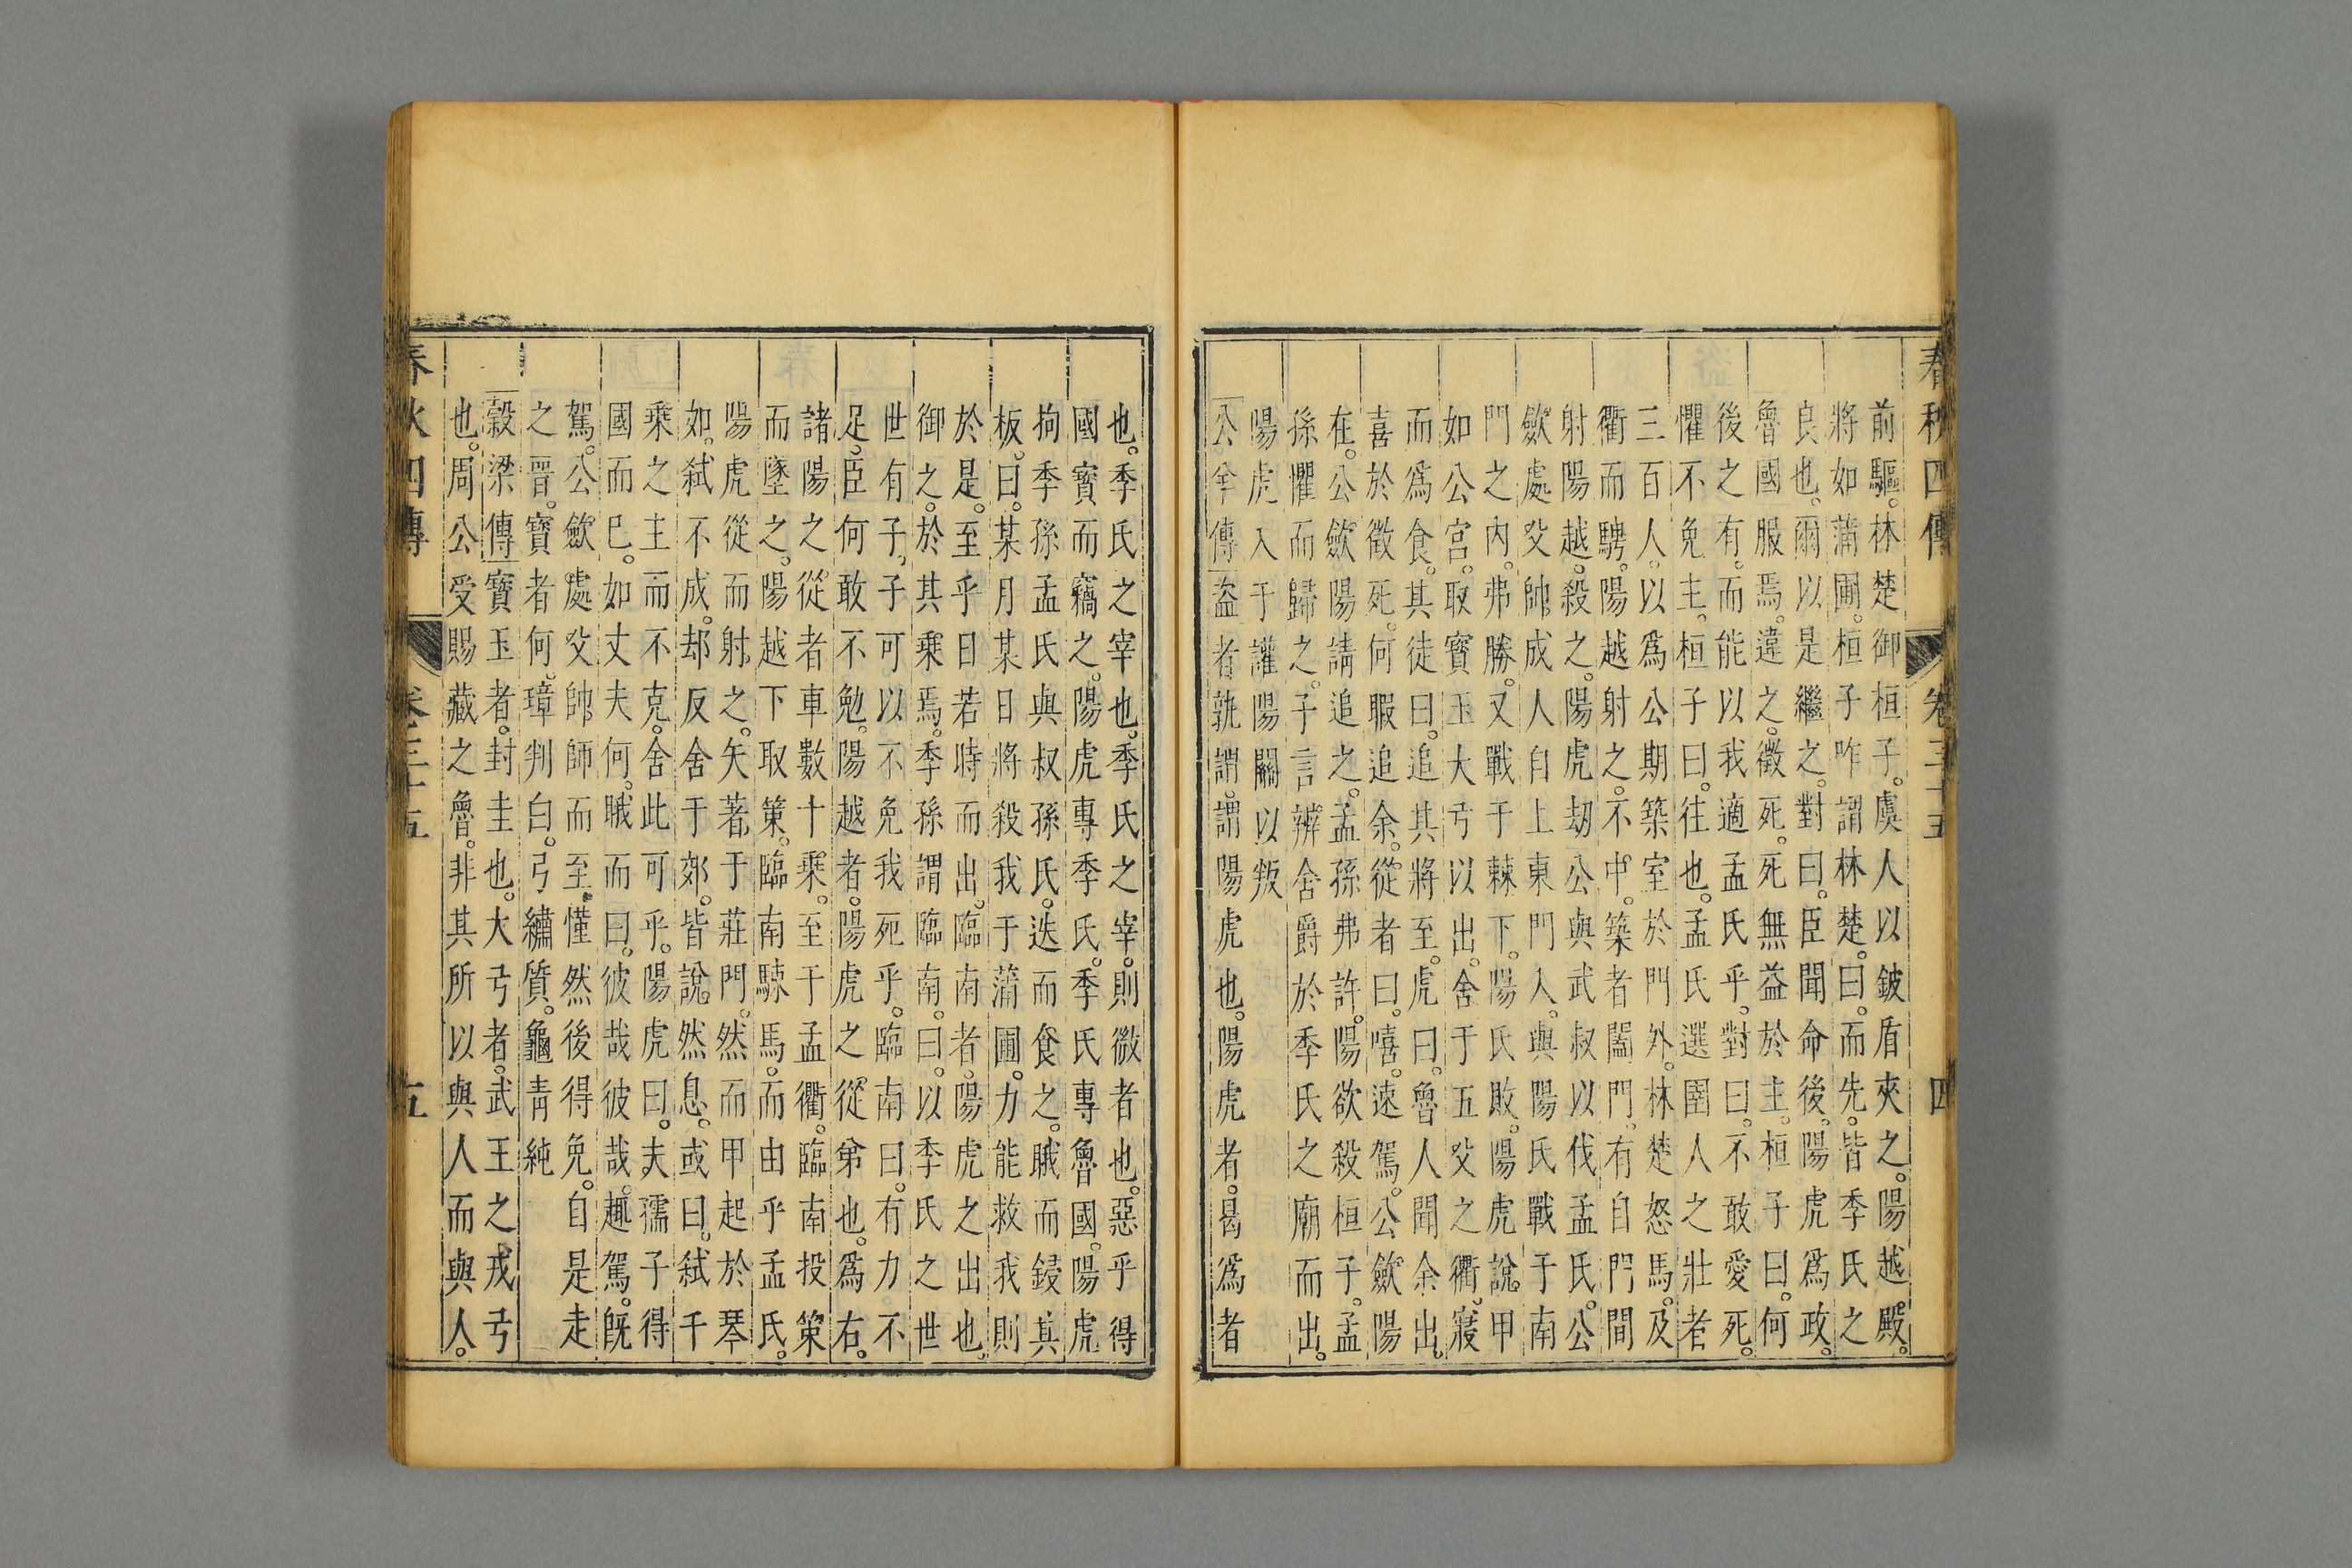 春秋四傳 卷三十五 四
前驅。林楚御桓子。虞人以鈹盾夾之。陽越殿。
將如蒲圃。桓子咋謂林楚。曰。而先。皆季氏之
良也。爾以是繼之。對曰。臣聞命後。陽虎爲政。
魯國服焉。違之。徵死。死無益於主。桓子曰。何
後之有。而能以我適孟氏乎。對曰。不敢愛死。
懼不免主。桓子曰。往也。孟氏選圉人之壯者
三百人。以爲公期築室於門外。林楚怒馬。及
衢而騁。陽越射之。不中。築者闔門。有自門間
射陽越。殺之。陽虎劫公與武叔以伐孟氏。公
歛處父帥成人自上東門入。與陽氏戰于南
門之內。弗勝。又戰于棘下。陽氏敗。陽虎說甲
如公宮。取寶玉大弓以出。舍于五父之衢。寢
而爲食。其徒曰。追其將至。虎曰。魯人聞余出。
喜於徵死。何暇追余。從者曰。嘻。速駕。公歛陽
在。公歛陽請追之。孟孫弗許。陽欲殺桓子。孟
孫懼而歸之。子言辨舍爵於季氏之廟而出。
陽虎入于讙陽關以叛
公羊傳盜者孰謂。謂陽虎也。陽虎者。曷爲者
也。季氏之宰也。季氏之宰。則微者也。惡乎得
國寶而竊之。陽虎專季氏。季氏專魯國。陽虎
拘季孫。孟氏與叔孫氏。迭而食之。睋而鋟其
板。曰。某月某日。將殺我于蒲圃。力能救我則
於是。至乎日若時而出。臨南者。陽虎之出也。
御之。於其乘焉。季孫謂臨南。曰。以季氏之世
世有子。子可以不免我死乎。臨南曰。有力不
足。臣何敢不勉。陽越者。陽虎之從弟也。爲右。
諸陽之從者車數十乘。至于孟衢。臨南投策
而墜之。陽越下取策。臨南駷馬。而由乎孟氏。
陽虎從而射之。矢著于莊門。然而甲起於琴
如。弑不成。却反舍于郊。皆說。然息。或曰。弑千
乘之主而不克。舍此可乎。陽虎曰。夫孺子得
國而已。如丈夫何。睋而曰。彼哉彼哉。趣駕。旣
駕。公歛處父帥師而至。慬然後得免。自是走
之晉。寶者何。璋判白。弓繡質。龜靑純
榖梁傳寶玉者。封圭也。大弓者。武王之戎弓
也。周公受賜藏之魯。非其所以與人而與人。
春秋四傳 卷三十五 五